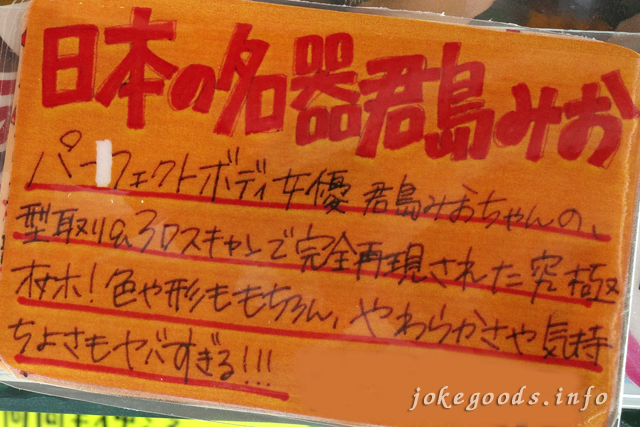 日本の名器君島みお
パーフェクトボディ女優 君島みおちゃんの、
型取り&3Dスキャンで完全再現された究極
オナホ!色や形ももちろん、やわらかさや気持
ちよさもヤバすぎる!!!
jokegoods.info